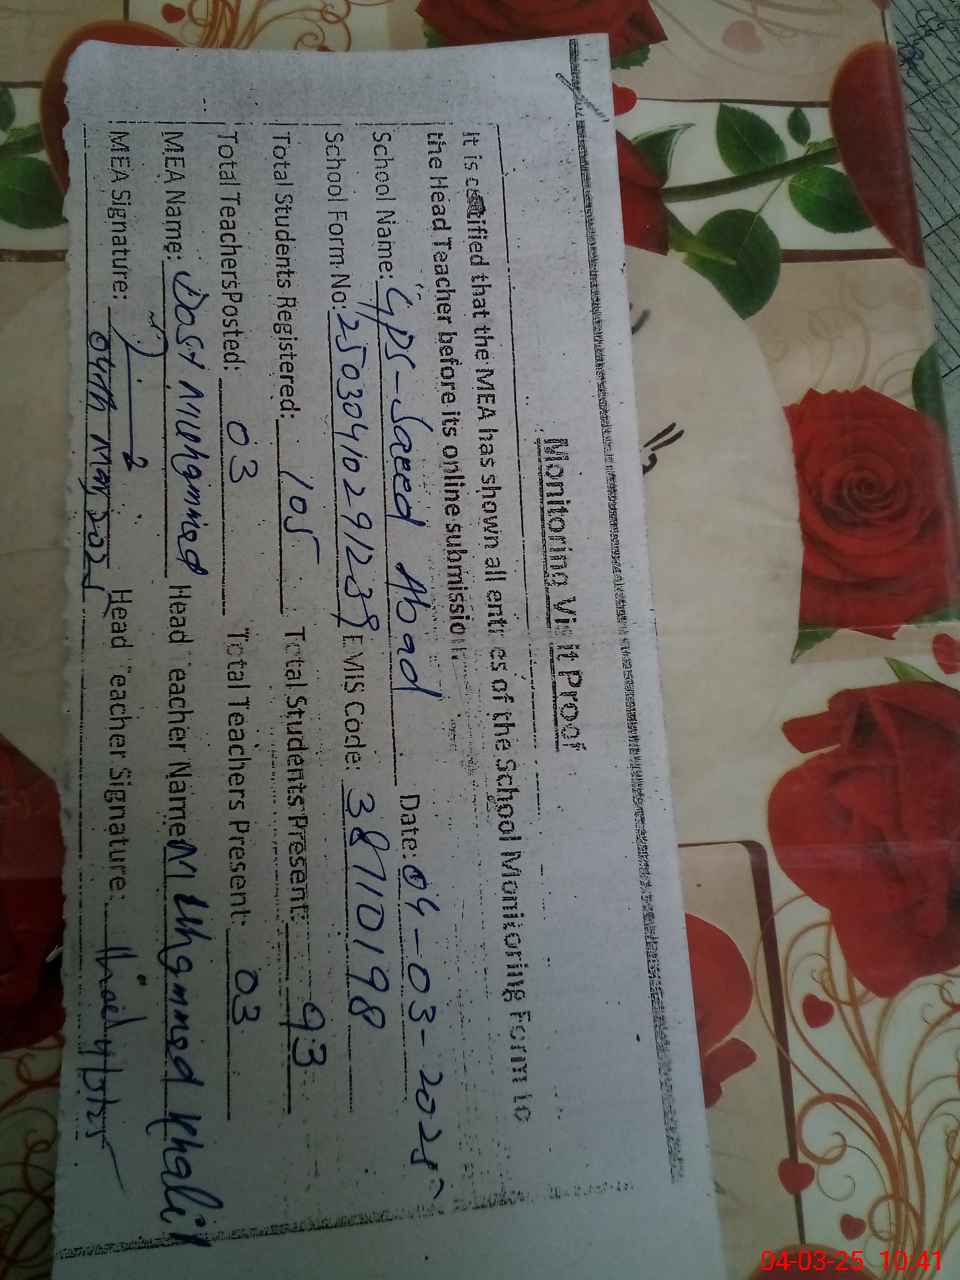 Monitoring Visit Proof
It is certified that the MEA has shown all entries of the School Monitoring Form to
the Head Teacher before its online submission.
School Name: GPS-Saeed Abad Date: 04-03-2025
School Form No: EMIS Code: 38710198
Total Students Registered: 105 Total Students Present: 93
Total Teachers Posted: 03 Total Teachers Present: 03
MEA Name: Dost Muhammad Head Teacher Name: Muhammad Khalil
MEA Signature: Head Teacher Signature:
04-03-25 10:41